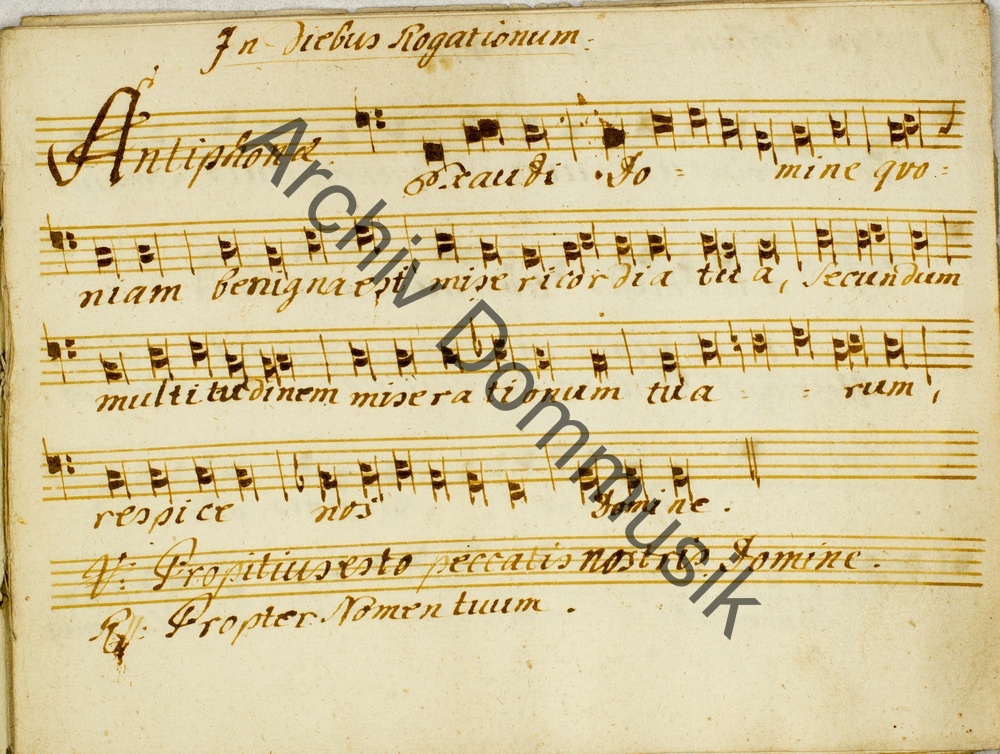 In Diebus Rogationum.
Antiphonæ.
Exaudi Do - mine quo =
niam benigna est misericordia tua, secundum
multitudinem miserationum tua = = rum,
respice nos Domine.
℣: Propitius esto peccatis nostris Domine.
℟: Propter Nomen tuum.
Archiv Dommusik